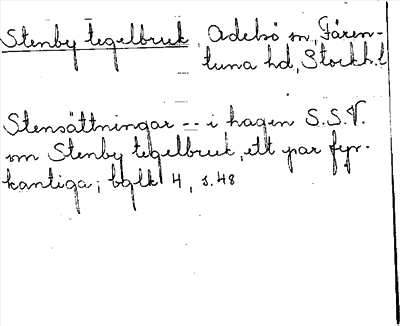 Stenby tegelbruk, Adelsö sn, Fären-
tuna hd, Stockh.l
Stensättningar -- i hagen S.S.V.
om Stenby tegelbruk, ett par fyr-
kantiga; bglk 4, s.48